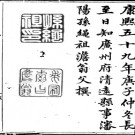 康熙五十九年庚子仲冬長
至日知廣州府清遠縣事瀋
陽孫繩祖澹翁父撰
2